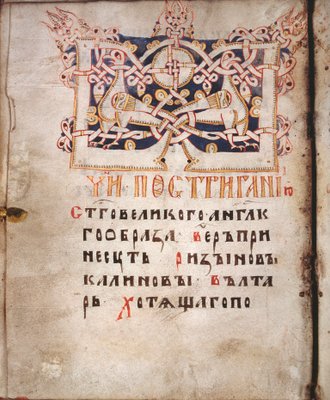 ЧИ ПОСТРИГАНІЮ
СТГОВЕЛИКОГОАНГЛК
ГООБРАЗА · ВЕРЪПРИ
НЕСУТЬ РИЗЫНОВЪ
КАЛИНОВЫ · ВЪЛТА
РЬ · ХОТѦЩАГОПО